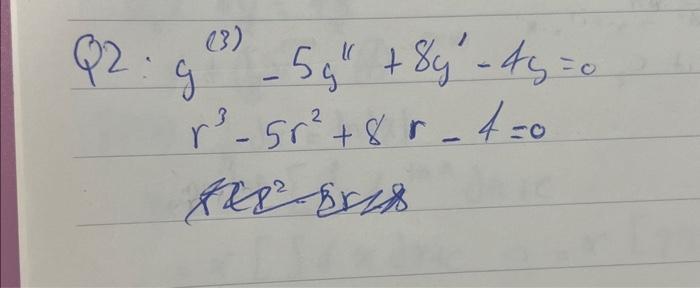 Q2: y⁽³⁾ - 5y" + 8y' - 4y = 0
r³ - 5r² + 8 r - 4 = 0